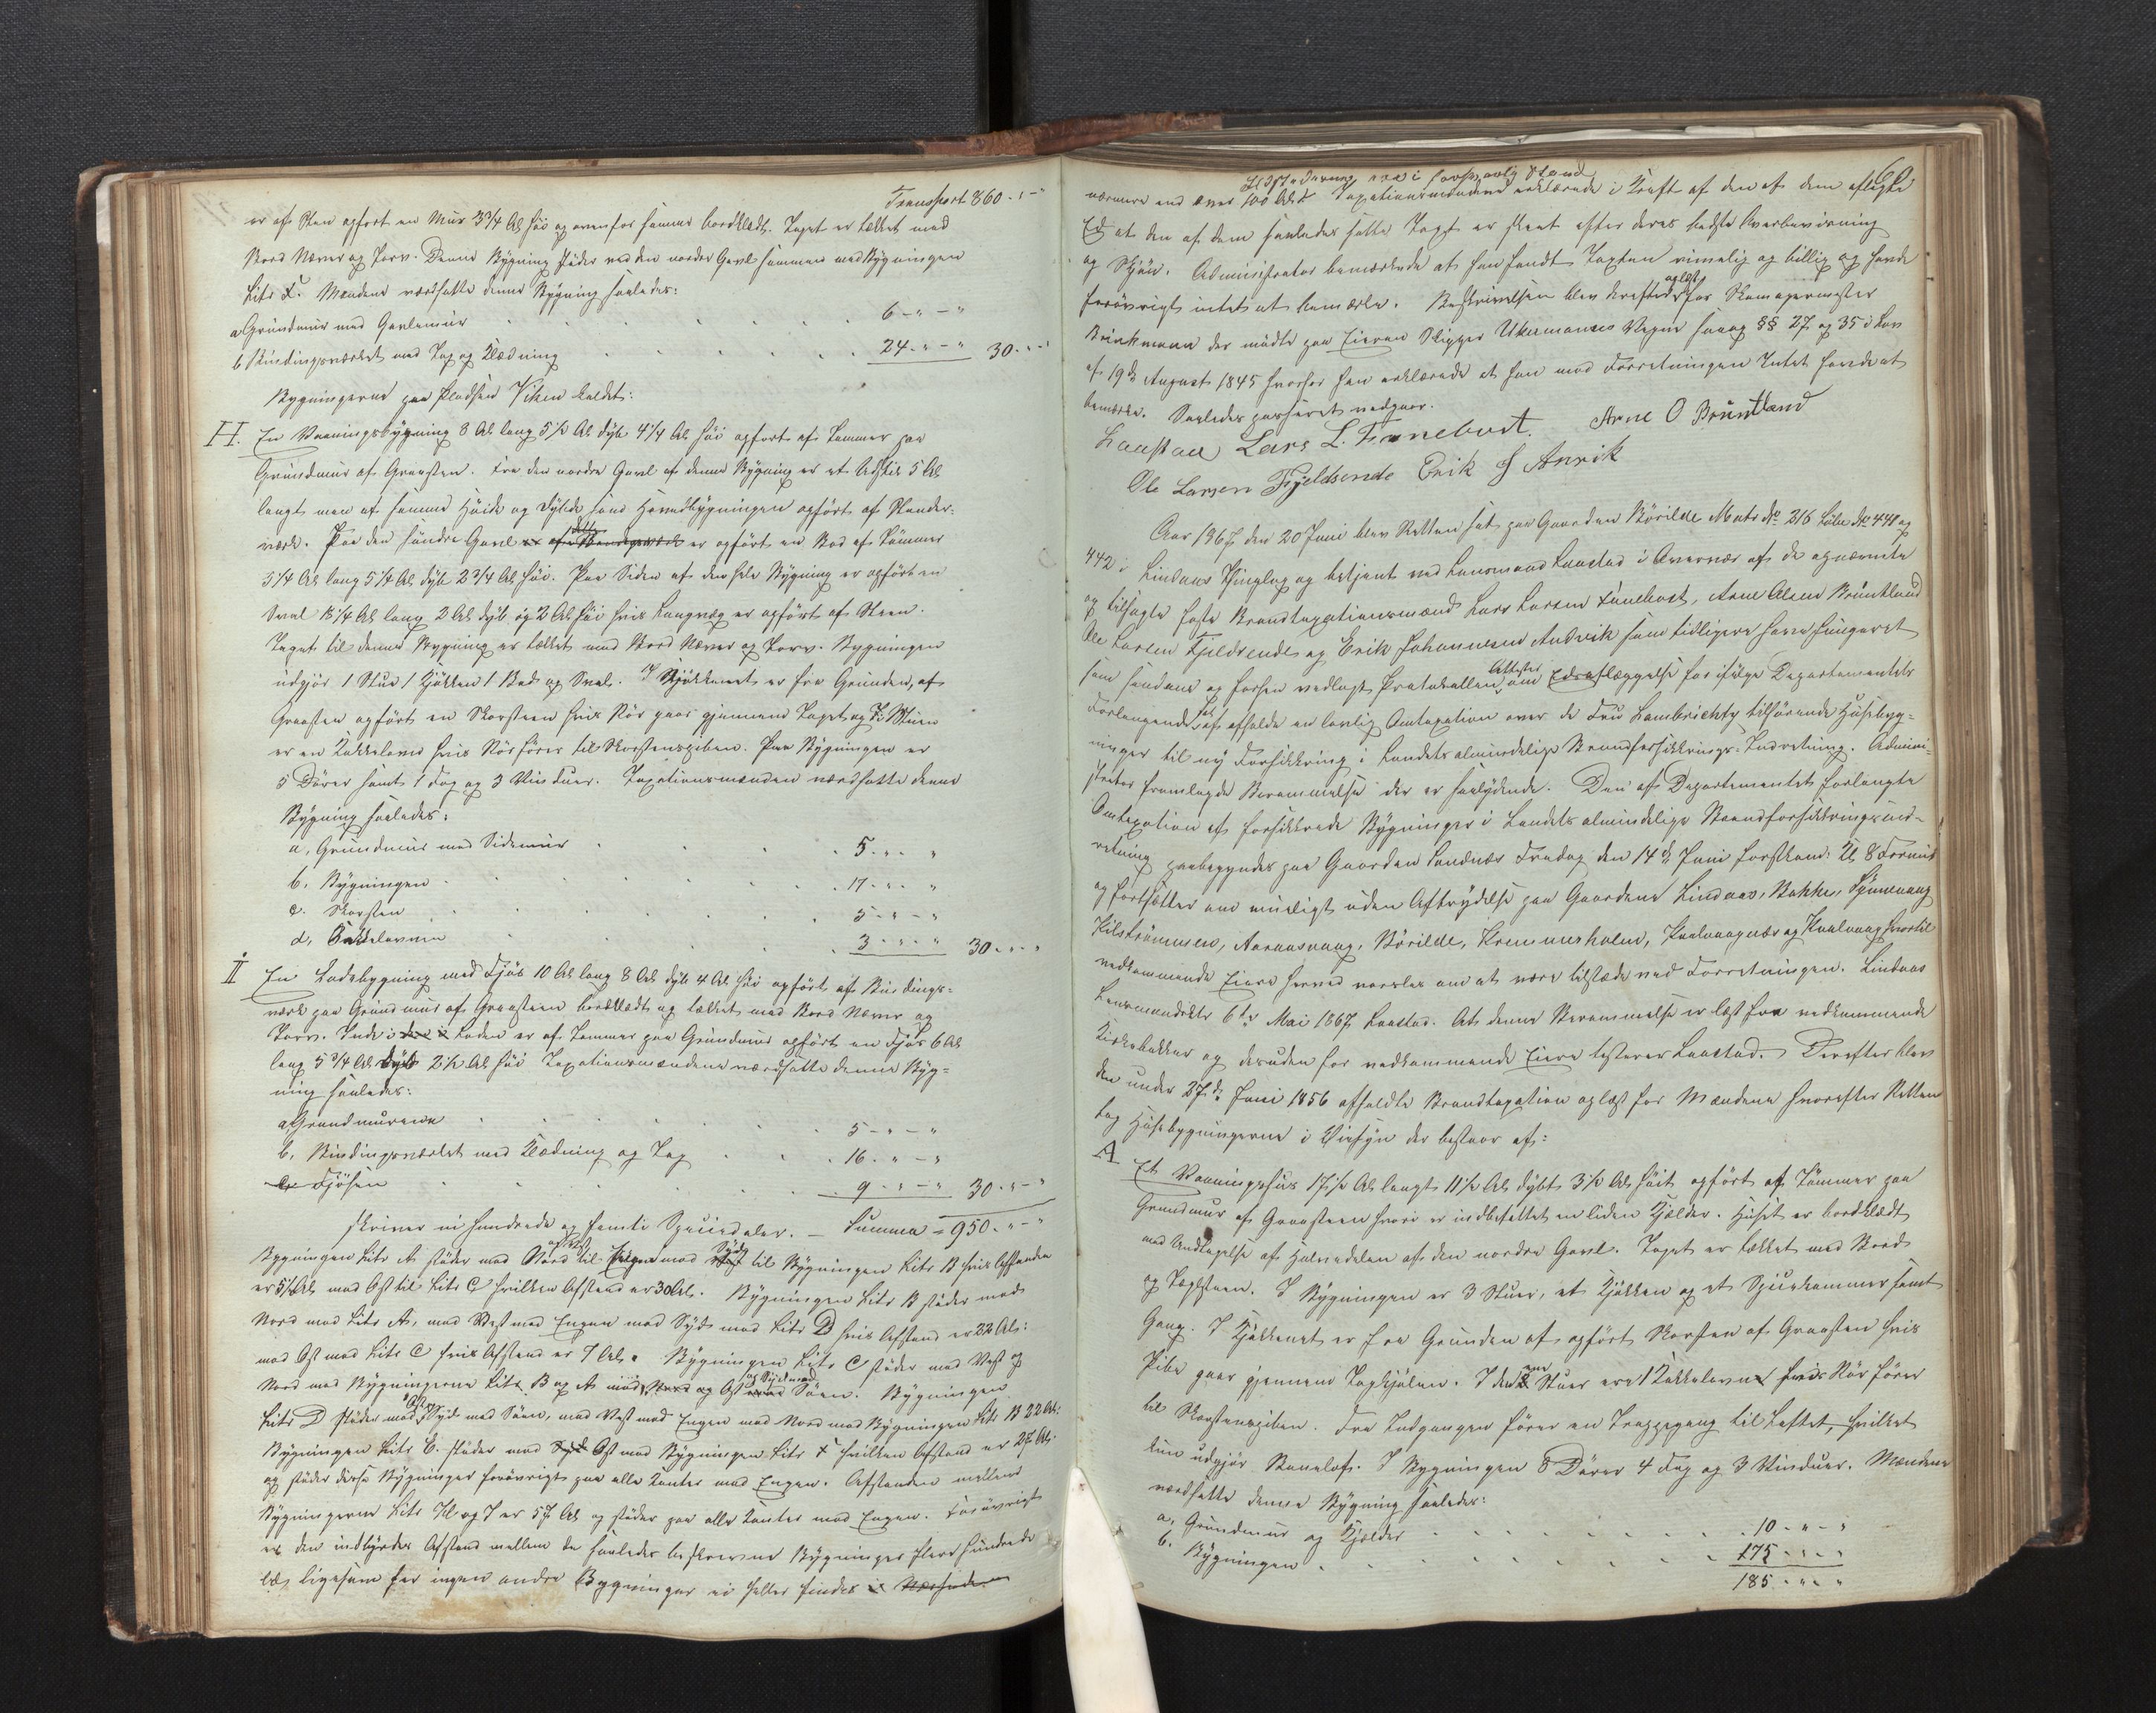 Transport 860 - " - "
er af Sten opfört en Mur 3 3/4 Al. höi og ovenfor samme bordklædt. Taget er tækket med
Bord Næver og Torv. Denne Bygning stöder ved den nordre Gavl sammen med Bygningen
Litr F. Mændene værdsatte denne Bygning saaledes:
a Grundmur med Gavlemur 6 - " - "
b Bindingsværket med Tag og Klædning 24 - " - " 30 - " - "
Bygningerne paa Pladsen Viken kaldet:
H. En Vaaningsbygning 8 Al. lang 5 1/2 Al. dyb 4 1/4 Al. höi opfört af Tømmer paa
Grundmur af Graasten. Fra den nordre Gavl af denne Bygning er et Udskud 5 Al.
langt men af samme Höide og Dybde som Hovedbygningen opfört af Stander-
værk. Paa den söndre Gavl er opfört en Bod af Tömmer
5 1/4 Al. lang 5 1/4 Al. dyb 2 3/4 Al. höi. Paa Siden af den hele Bygning er opfört en
Sval 18 1/4 Al. lang 2 Al. dyb og 2 Al. höi hvis Langvæg er opfört af Steen.
Taget til denne Bygning er tækket med Bord Næver og Torv. Bygningen
udgjör 1 Stue 1 Kjökken 1 Bod og Sval. I Kjökkenet er fra Grunden, af
Graasten opfört en Skorsteen hvis Rör gaar gjennem Taget og I Stuen
er en Kakkelovn hvis Rör förer til Skorstenspiben. Paa Bygningen er
5 Dörer samt 1 Fag og 3 Vinduer. Taxationsmænden værdsatte denne
Bygning saaledes:
a, Grundmur med Sidemur 5 - " - "
b, Bygningen 17 - " - "
c. Skorsten 5 - " - "
d, Kakkelovnen 3 - " - " 30 - " - "
I En Ladebygning med Fjös 10 Al. lang 8 Al. dyb 4 Al. höi opfört af Bindings-
værk paa Grundmur af Graasteen bordklædt og tækket med Bord Næver og
Torv. Inde i Laden er af Tømmer paa Grundmur opfört en Fjös 6 Al.
lang 5 3/4 Al. dyb 2 1/2 Al. höi Taxationsmændene værdsatte denne Byg-
ning saaledes:
a, Grundmurene 5 - " - "
b, Bindingsværket med Klædning og Tag 16 - " - "
c, Fjösen 9 - " - " 30 - " - "
skriver ni hundrede og femti Speciedaler. - Summa = 950 - " - "
Bygningen Litr A stöder mod Nord og Vest til Engen mod Syd til Bygningen Litr B hvis Afstanden
er 5 1/2 Al. mod Öst til Litr C hvilken Afstand er 30 Al. Bygningen Litr B stöder mod
Nord mod Litr A, mod Vest mod Engen mod Syd mod Litr D hvis Afstand er 22 Al:
mod Öst mod Litr C hvis Afstand er 7 Al. Bygningen Litr C stöder mod Vest og
Nord mod Bygningerne Litr B og A mod og Öst og Syd mod Söen. Bygningen
Litr D stöder mod Öst og Syd mod Söen, mod Vest mod Engen mod Nord mod Bygningen Litr B 22 Al:
Bygningen Litr E. stöder mod Öst mod Bygningen Litr F hvilken Afstand er 27 Al.
og stöder disse Bygninger forövrigt paa alle Kanter mod Engen. Afstanden mellem
Bygningerne Litr H og I er 57 Al. og stöder paa alle Kanter mod Engen. Forövrigt
er den indbyrdes Afstand mellem de saaledes beskrevne Bygninger flere hundrede
Al. ligesom her ingen andre Bygninger ei heller findes i Nærheden
66
Ildsstederne ere i forsvarlig Stand
nærmere end over 100 Alen Taxationsmændene erklærede i Kraft af den af dem aflagte
Ed at den af dem saaledes satte Taxt er skeet efter deres bedste Overbeviisning
og Skjön. Administrator bemærkede at han fandt Taxten rimelig og billig og havde
forövrigt intet at bemærke. Beskrivelsen blev derefter oplæst for Skomagermester
Brinkmann der mödte paa Eieren Skipper Ukermanns Vegne samt §§ 27 og 35 i Lov
af 19de August 1845 hvorfor han erklærede at han mod Forretningen Intet havde at
bemærke. Saaledes passeret vedgaar.
Laastad Lars L. Fonnebost. Arne O Bruntland
Ole Larsen Fjeldsende Erik J Anvik
Aar 1867 den 20 Juni blev Retten sat paa Gaarden Börilde Matr No 216 Löbe No 441 og
442 i Lindaas Thinglag og betjent ved Lensmand Laastad i Overvær af de opnævnte
og tilsagte faste Brandtaxationsmænd Lars Larsen Fonnebost, Arne Olsen Bruntland
Ole Larsen Fjeldsende og Erik Johannesen Andvik som tidligere have fungeret
som saadane og forhen vedlagt Protokollen Attester om Edsaflæggelse for ifölge Departementets
Forlangende at afholde en lovlig Omtaxation over de Fru Lambrechts tilhörende Husebyg-
ninger til ny Forsikkring i Landets almindelige Brandforsikkrings-Indretning. Admini-
strator fremlagde Berammelse der er saalydende. Den af Departementet forlangte
Omtaxation af forsikkrede Bygninger i Landets almindelige Brandforsikkringsind-
retning paabegyndes paa Gaarden Sandnæs Fredag den 14de Juni förstkom: Kl 8 Formid
og fortsættes om mueligt uden Afbrydelse paa Gaardene Lindaas, Bakke, Spjutøvaag
Kilströmmen, Aaraasvaag, Börilde, Kremmerholm, Paalvaagnæs og Kvalvaag hvortil
vedkommende Eiere herved varsles om at være tilstede ved Forretningen. Lindaas
Lensmandsktr 6te Mai 1867. Laastad. At denne Berammelse er læst fra vedkommende
Kirkebakker og desuden for vedkommende Eiere testerer Laastad. Derefter blev
den under 27de Juni 1856 afholdte Brandtaxation oplæst for Mændene hvorefter Retten
tog Husebygningerne i Öiesyn der bestaar af:
A Et Vaaningshus 17 1/2 Al. langt 11 1/2 Al. dybt 3 1/2 Al. höit opfört af Tömmer paa
Grundmur af Graasteen hvori er indbefattet en liden Kjelder. Huset er bordklædt
med Undtagelse af Halvedelen af den nordre Gavl. Taget er tækket med Bord
og Tagsteen. I Bygningen er 3 Stuer, et Kjökken og et Spisekammer samt
Gang. I Kjökkenet er fra Grunden af opfört Skorsten af Graasten hvis
Pibe gaar gjennem Tagkjölen. I den ene Stue ere 1 Kakkelovn hvis Rör förer
til Skorstenspiben. Fra Indgangen förer en Trappegang til Loftet, hvilket
kun udgjör Stueloft. I Bygningen 8 Dörer 4 Fag og 3 Vinduer. Mændene
værdsatte denne Bygning saaledes:
a, Grundmur og Kjelder 10 - " - "
b. Bygningen 175 - " - "
185 - " - "